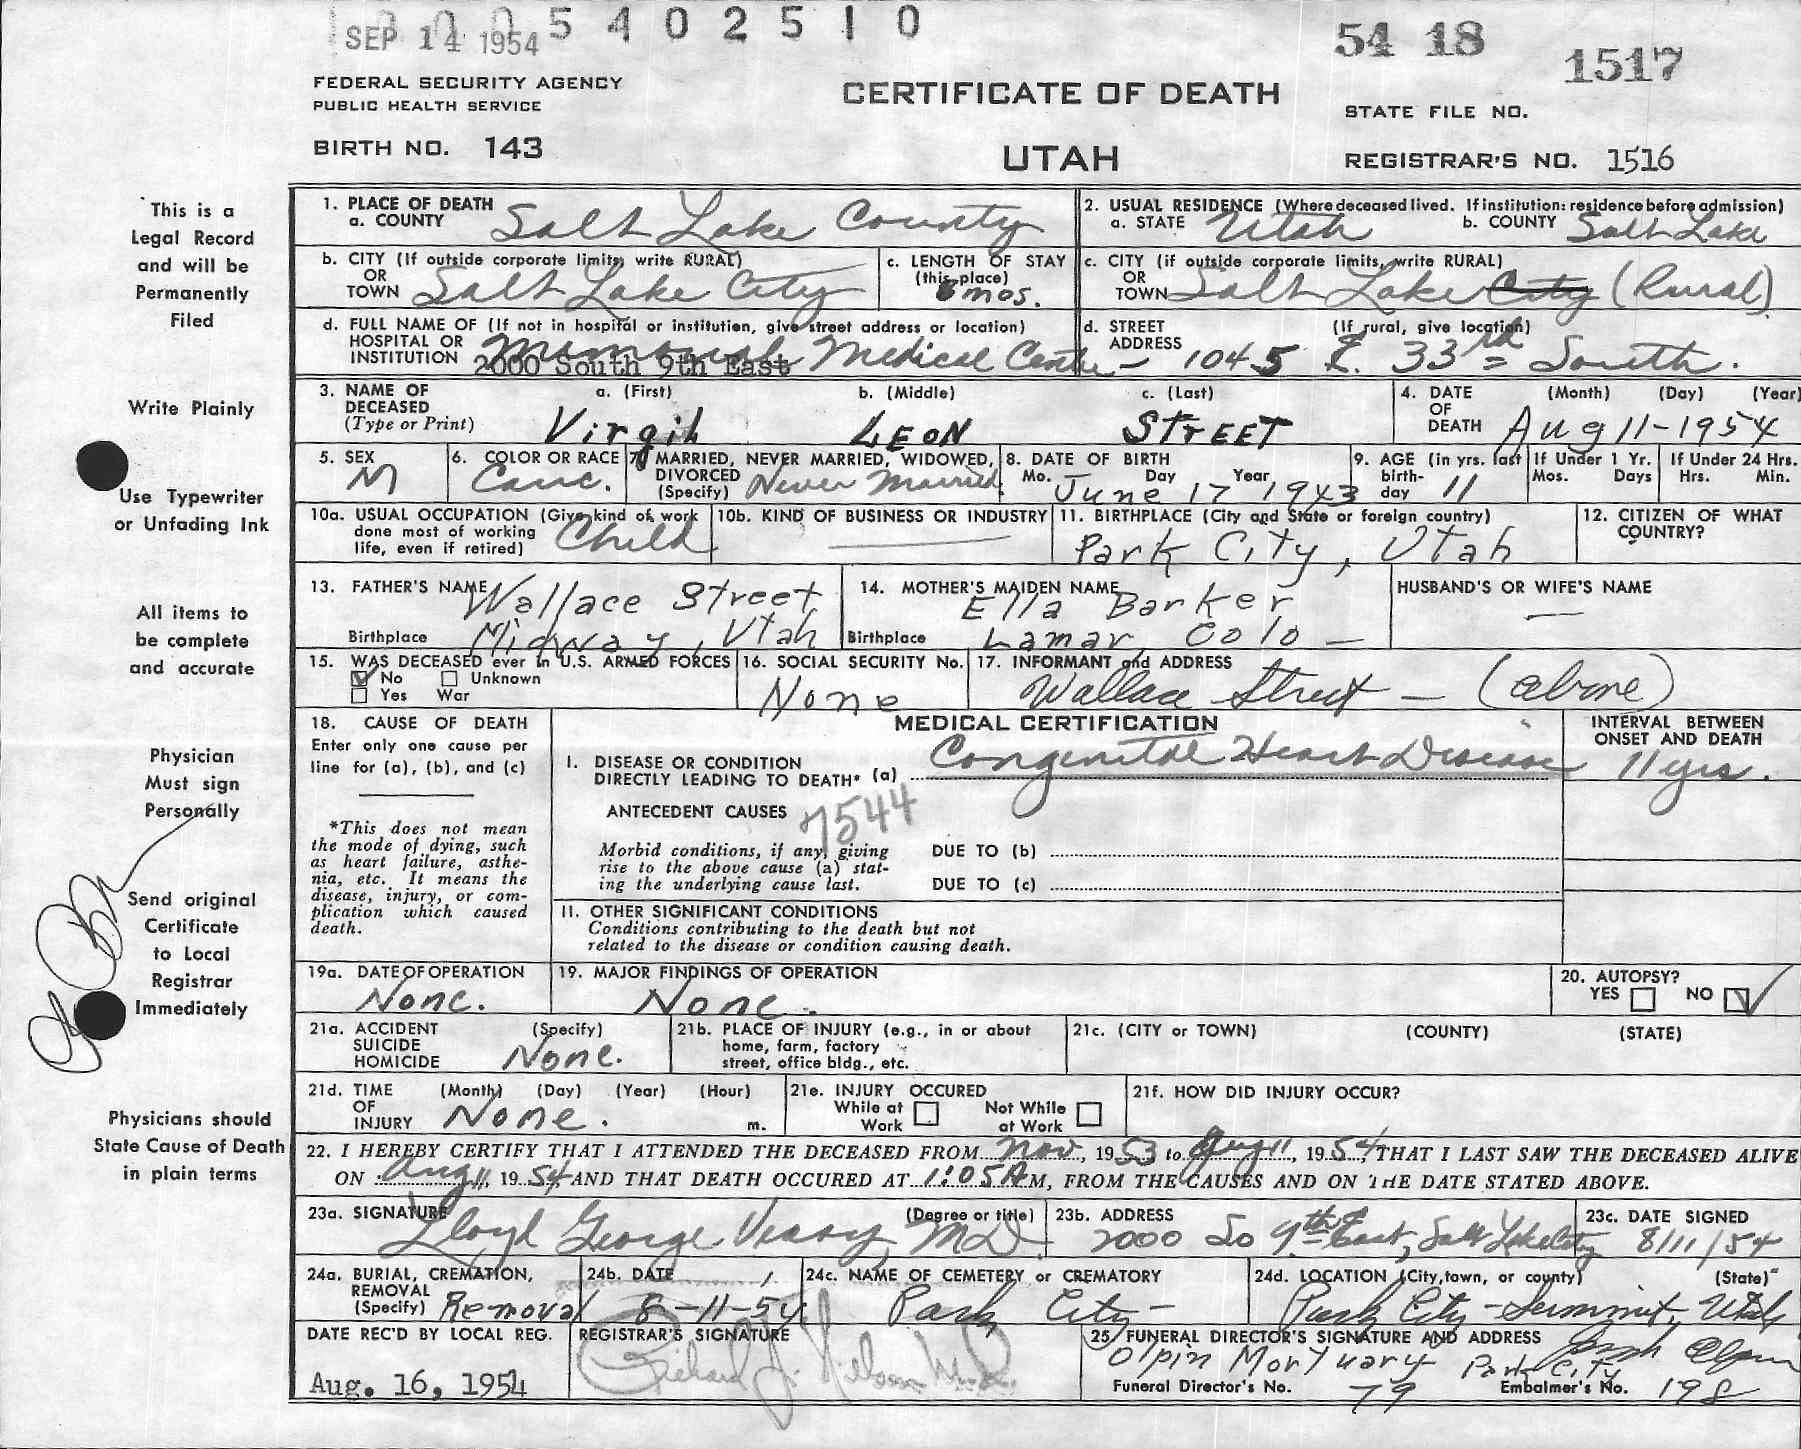 SEP 14 1954
0 0 5 4 0 2 5 1 0
54 18
1517
FEDERAL SECURITY AGENCY
PUBLIC HEALTH SERVICE
CERTIFICATE OF DEATH
STATE FILE NO.
BIRTH NO. 143
UTAH
REGISTRAR'S NO. 1516
This is a
Legal Record
and will be
Permanently
Filed
Write Plainly
Use Typewriter
or Unfading Ink
All items to
be complete
and accurate
Physician
Must sign
Personally
Send original
Certificate
to Local
Registrar
Immediately
Physicians should
State Cause of Death
in plain terms
1. PLACE OF DEATH
a. COUNTY Salt Lake County
2. USUAL RESIDENCE (Where deceased lived. If institution: residence before admission)
a. STATE Utah b. COUNTY Salt Lake
b. CITY (If outside corporate limits, write RURAL)
OR
TOWN Salt Lake City
c. LENGTH OF STAY
(this place)
mos.
c. CITY (if outside corporate limits, write RURAL)
OR
TOWN Salt Lake City (Rural)
d. FULL NAME OF (If not in hospital or institution, give street address or location)
HOSPITAL OR
INSTITUTION Memorial Medical Center
2000 South 9th East
d. STREET (If rural, give location)
ADDRESS 1045 E. 33th South.
3. NAME OF
DECEASED
(Type or Print)
a. (First) b. (Middle) c. (Last)
Virgil LEON STREET
4. DATE (Month) (Day) (Year)
OF
DEATH Aug 11-1954
5. SEX
M
6. COLOR OR RACE
Cauc.
7. MARRIED, NEVER MARRIED, WIDOWED,
DIVORCED
(Specify) Never Married
8. DATE OF BIRTH
Mo. Day Year
June 17 1943
9. AGE (in yrs. last
birth-
day 11
If Under 1 Yr.
Mos. Days
If Under 24 Hrs.
Hrs. Min.
10a. USUAL OCCUPATION (Give kind of work
done most of working
life, even if retired) Child
10b. KIND OF BUSINESS OR INDUSTRY
11. BIRTHPLACE (City and State or foreign country)
Park City, Utah
12. CITIZEN OF WHAT
COUNTRY?
13. FATHER'S NAME Wallace Street
Birthplace Midway, Utah
14. MOTHER'S MAIDEN NAME Ella Barker
Birthplace Lamar, Colo —
HUSBAND'S OR WIFE'S NAME
—
15. WAS DECEASED ever in U.S. ARMED FORCES
No Unknown
Yes War
16. SOCIAL SECURITY No.
None
17. INFORMANT and ADDRESS
Wallace Street — (above)
18. CAUSE OF DEATH
Enter only one cause per
line for (a), (b), and (c)
*This does not mean
the mode of dying, such
as heart failure, asthe-
nia, etc. It means the
disease, injury, or com-
plication which caused
death.
MEDICAL CERTIFICATION
INTERVAL BETWEEN
ONSET AND DEATH
I. DISEASE OR CONDITION
DIRECTLY LEADING TO DEATH* (a) Congenital Heart Disease 11 yrs.
ANTECEDENT CAUSES
7544
Morbid conditions, if any, giving
rise to the above cause (a) stat-
ing the underlying cause last.
DUE TO (b)
DUE TO (c)
II. OTHER SIGNIFICANT CONDITIONS
Conditions contributing to the death but not
related to the disease or condition causing death.
19a. DATE OF OPERATION
None.
19. MAJOR FINDINGS OF OPERATION
None.
20. AUTOPSY?
YES NO
21a. ACCIDENT (Specify)
SUICIDE
HOMICIDE None.
21b. PLACE OF INJURY (e.g., in or about
home, farm, factory
street, office bldg., etc.
21c. (CITY or TOWN) (COUNTY) (STATE)
21d. TIME (Month) (Day) (Year) (Hour)
OF
INJURY None. m.
21e. INJURY OCCURED
While at Work
Not While at Work
21f. HOW DID INJURY OCCUR?
22. I HEREBY CERTIFY THAT I ATTENDED THE DECEASED FROM Nov, 1953 to Aug 11, 1954, THAT I LAST SAW THE DECEASED ALIVE
ON Aug 11, 1954 AND THAT DEATH OCCURED AT 1:05 A M, FROM THE CAUSES AND ON THE DATE STATED ABOVE.
23a. SIGNATURE (Degree or title)
Lloyd George MD
23b. ADDRESS
2000 So 9th East, Salt Lake City
23c. DATE SIGNED
8/11/54
24a. BURIAL, CREMATION,
REMOVAL
(Specify) Removal
24b. DATE
8-11-54
24c. NAME OF CEMETERY or CREMATORY
Park City —
24d. LOCATION (City, town, or county) (State)
Park City — Summit, Utah
DATE REC'D BY LOCAL REG.
Aug. 16, 1954
REGISTRAR'S SIGNATURE
Richard J. Nelson M.D.
25. FUNERAL DIRECTOR'S SIGNATURE AND ADDRESS
Olpin Mortuary Park City
Funeral Director's No. 79
Embalmer's No. 198